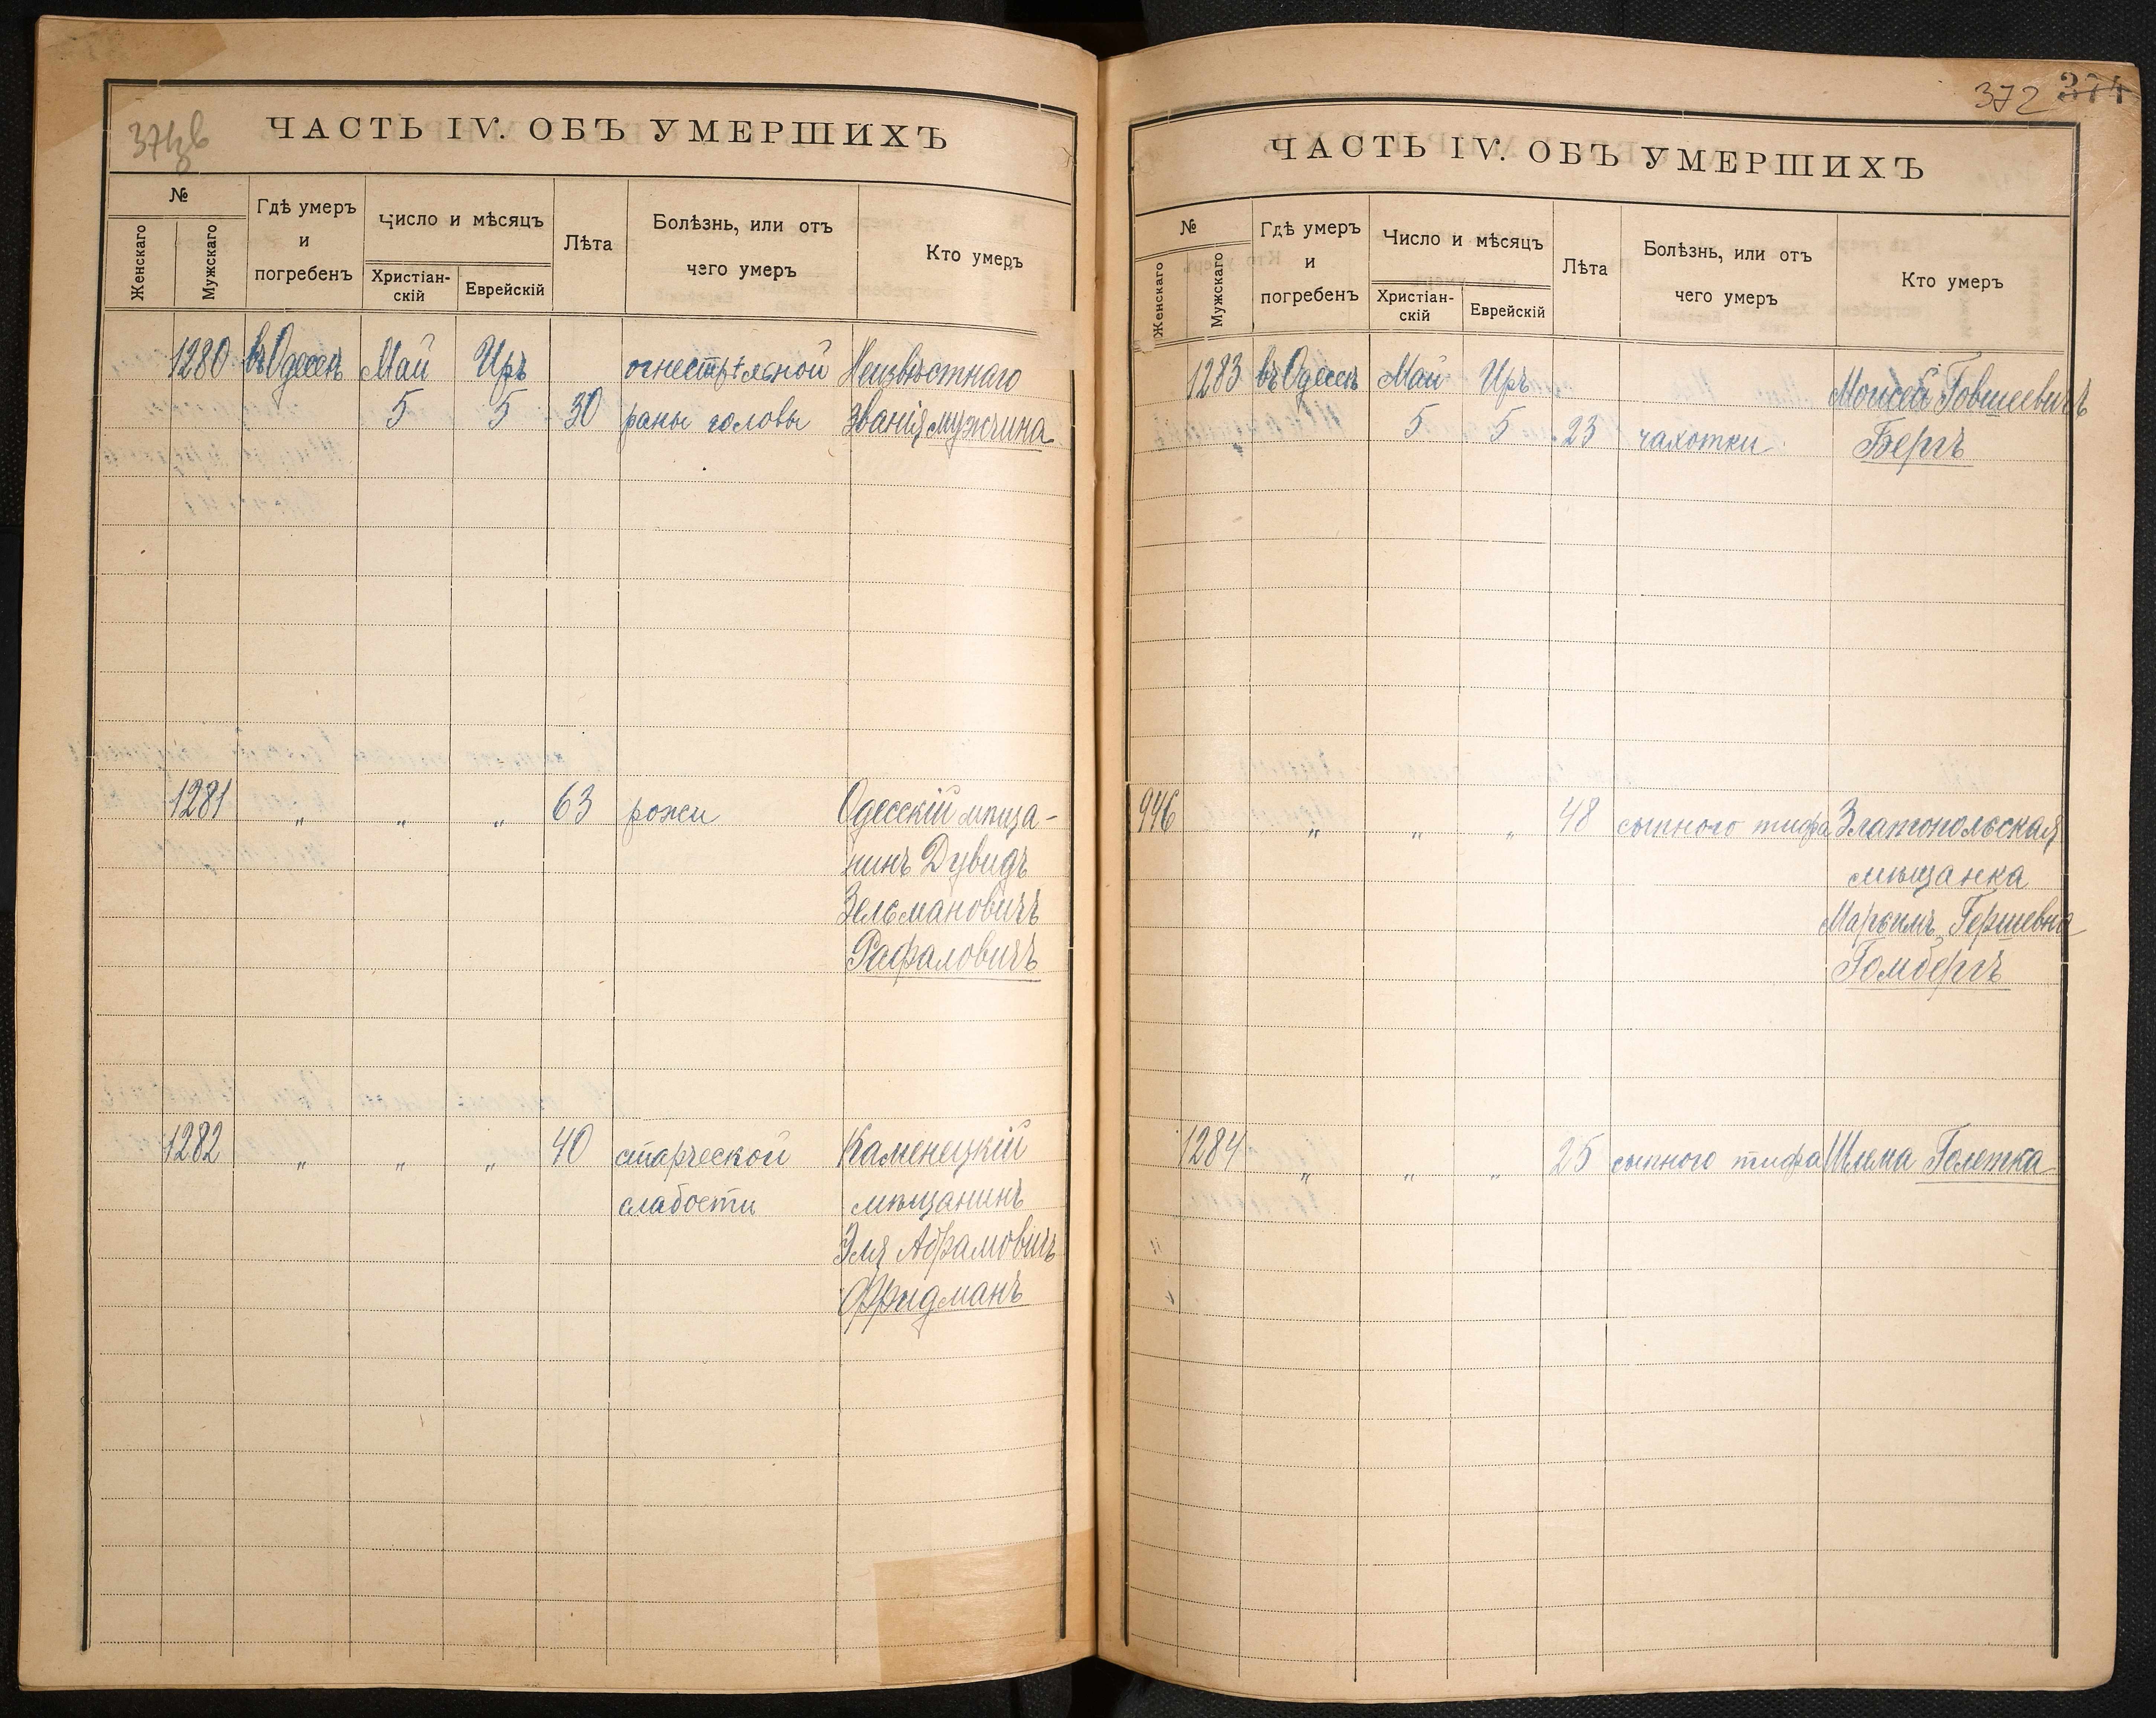 ЧАСТЬ IV. ОБЪ УМЕРШИХЪ
№
Женскаго
Мужскаго
Гдѣ умеръ
и
погребенъ
Число и мѣсяцъ
Христіан-
скій
Еврейскій
Лѣта
Болѣзнь, или отъ
чего умеръ
Кто умеръ
1280 въ Одессѣ Май Иръ огнестрѣльной Неизвѣстнаго
5 5 30 раны головы званія мужчина
1281 „ „ „ 63 рожи Одесскій мѣща-
нинъ Дувидъ
Зельмановичъ
Рафаловичъ
1282 „ „ „ 40 старческой Каменецкій
слабости мѣщанинъ
Эля Абрамовичъ
Фридманъ
372 374
ЧАСТЬ IV. ОБЪ УМЕРШИХЪ
№
Женскаго
Мужскаго
Гдѣ умеръ
и
погребенъ
Число и мѣсяцъ
Христіан-
скій
Еврейскій
Лѣта
Болѣзнь, или отъ
чего умеръ
Кто умеръ
1283 въ Одессѣ Май Иръ Моисей Говшеевичъ
5 5 23 чахотки Бергъ
946 „ „ „ 48 сыпного тифа Златопольская
мѣщанка
Марьимъ Гершевна
Гомбергъ
1284 „ „ „ 25 сыпного тифа Шлема Голетка